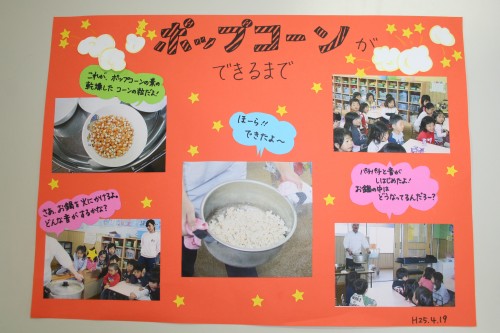 ポップコーンが
できるまで
これが、ポップコーンの素の
乾燥したコーンの粒だよ!
さあ、お鍋を火にかけるよ。
どんな音がするかな?
ほーら!!
できたよ〜
パチパチと音が
しはじめたよ!
お鍋の中は
どうなってるんだろー?
H25.4.19